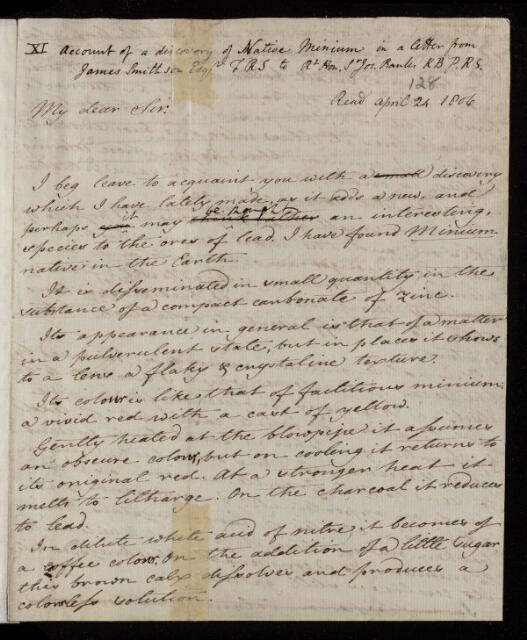 XI Account of a discovery of Native Minium in a letter from
James Smithson Esqr. F.R.S. to Rt. Hon. Sr. Jos. Banks K.B. P.R.S.
128
Read April 24 1806
My dear Sir:
I beg leave to acquaint you with a small discovery
which I have lately made, as it adds a new, and
it be thought
perhaps may an interesting,
species to the ores of lead. I have found Minium
native in the Earth.
It is disseminated in small quantity in the
substance of a compact carbonate of zinc.
Its appearance in general is that of a matter
in a pulverulent state, but in places it shows
to a lens a flaky & crystaline texture.
Its colour is like that of factitious minium,
a vivid red with a cast of yellow.
Gently heated at the blowpipe it assumes
an obscure colour, but on cooling it returns to
its original red. At a stronger heat it
melts to litharge. On the charcoal it reduces
to lead.
In dilute white acid of nitre it becomes of
a coffee colour. On the addition of a little sugar
this brown calx dissolves, and produces a
colourless solution.